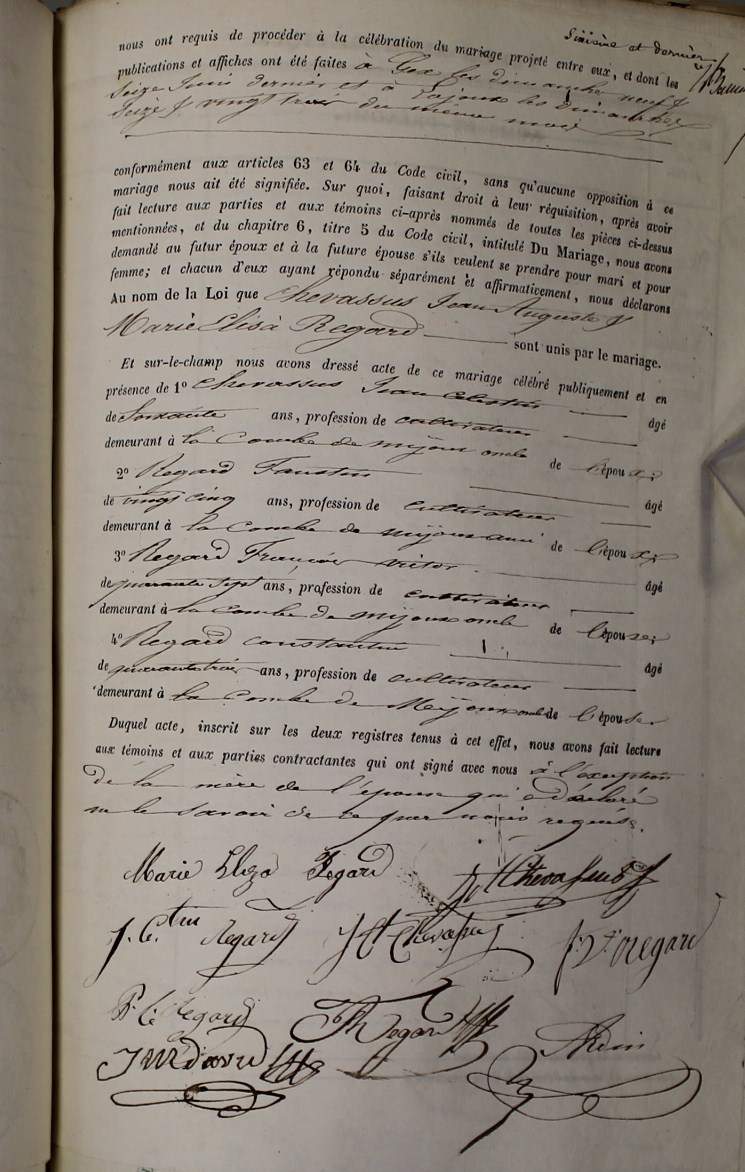 Sixième et dernière
nous ont requis de procéder à la célébration du mariage projeté entre eux, et dont les
publications et affiches ont été faites à Gex les dimanche neuf &
seize Juin dernier et à Lajoux les dimanches
seize & vingt trois du même mois
conformément aux articles 63 et 64 du Code civil, sans qu'aucune opposition à ce
mariage nous ait été signifiée. Sur quoi, faisant droit à leur réquisition, après avoir
fait lecture aux parties et aux témoins ci-après nommés de toutes les pièces ci-dessus
mentionnées, et du chapitre 6, titre 5 du Code civil, intitulé Du Mariage, nous avons
demandé au futur époux et à la future épouse s'ils veulent se prendre pour mari et pour
femme; et chacun d'eux ayant répondu séparément et affirmativement, nous déclarons
Au nom de la Loi que Chevassus Jean Auguste &
Marie Elisa Regard sont unis par le mariage.
Et sur-le-champ nous avons dressé acte de ce mariage célébré publiquement et en
présence de 1º Chevassus Jean Célestin âgé
de Soixante ans, profession de cultivateur
demeurant à la Combe de mijoux oncle de l'époux;
2º Regard Faustin âgé
de vingt cinq ans, profession de cultivateur
demeurant à la Combe de mijoux ami de l'époux;
3º Regard François victor âgé
de quarante sept ans, profession de cultivateur
demeurant à la Combe de mijoux oncle de l'épouse;
4º Regard constantin âgé
de quarante trois ans, profession de cultivateur
demeurant à la Combe de Mijoux oncle de l'épouse
Duquel acte, inscrit sur les deux registres tenus à cet effet, nous avons fait lecture
aux témoins et aux parties contractantes qui ont signé avec nous à l'exception
de la mère de l'époux qui a déclaré
ne le savoir de ce par nous requise.
Marie Eliza Regard Chevassus
J. C. tin Regard J Ct Chevassus f. Vor regard
Regard Regard